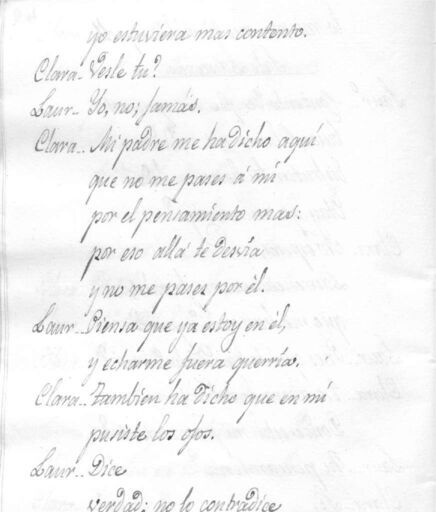 yo estuviera mas contento.
Clara.. Vesle tu?
Laur.. Yo, no; jamás.
Clara.. Mi padre me ha dicho aquí
que no me pases á mí
por el pensamiento mas:
por eso allá te desvia
y no me pases por él.
Laur.. Piensa que ya estoy en él,
y echarme fuera querría.
Clara.. tambien ha dicho que en mí
pusiste los ojos.
Laur.. Dice
verdad; no lo contradice